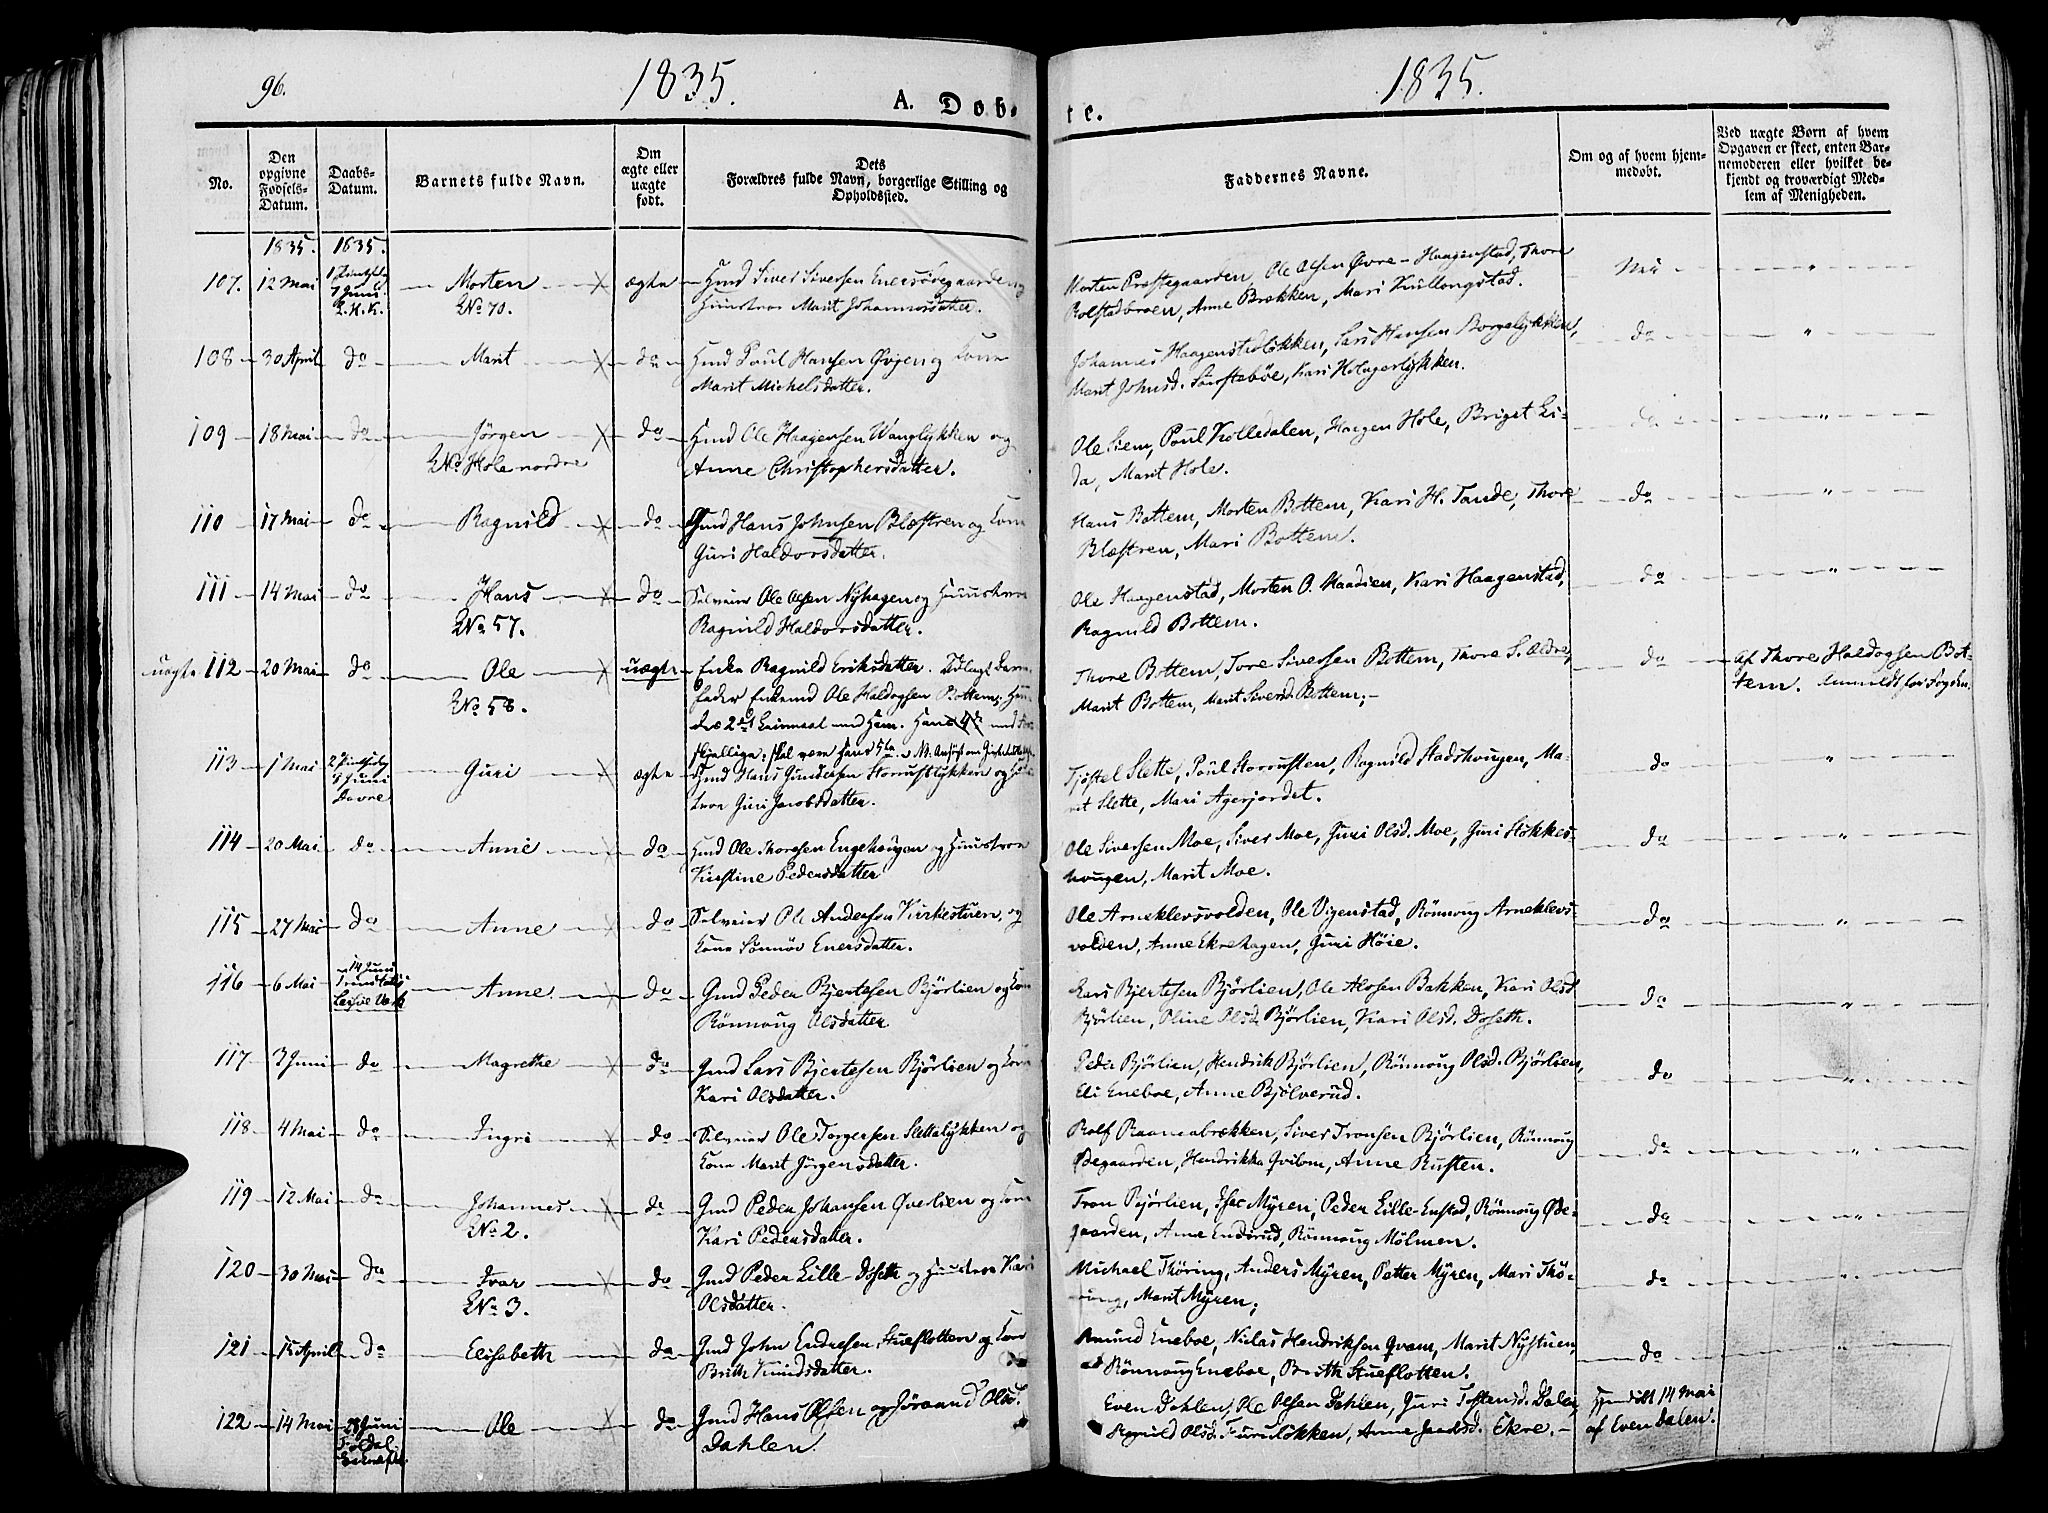 96.
1835.
A. Døb-
te.
1835.
No.
Den opgivne Fødsels-Datum.
Daabs-Datum.
Barnets fulde Navn.
Om ægte eller uægte født.
Dets Forældres fulde Navn, borgerlige Stilling og Opholdssted.
Faddernes Navne.
Om og af hvem hjem-medøbt.
Ved uægte Børn af hvem Opgaven er skeet, enten Bar-nemoderen eller hvilket be-kjendt og troværdigt Med-lem af Menigheden.
1835. 1835.
107. 12 Mai 7 Juni Morten ægte Siver Siversen og
No 70. Huustroe Marit Johannesdatter.
Morten Præstegaarden, Ole Olsen Øvre-Haagenstad, Thore Nei "
Rolstadbroen, Anne Brækken, Mari Kullongstad.
108 30 April do Marit do Hmd Poul Hansen og Kone
Marit Michelsdatter.
Johannes Lars Hansen do "
Marit Johnsd.
109 18 Mai do Jørgen do Hmd Ole Haagensen Wanglykken og
No Hole nordre Anne Christophersdatter.
Ole Siem, Poul Kolledalen, Haagen Hole, Briget Li- do "
da, Marit Hole.
110 17 Mai do Ragnild do Hmd Hans Johnsen Blæstren og Kone
Guri Haldorsdatter.
Hans Bottem, Morten Bottem, Kari H. Tande, Thore do "
Blæstren, Mari Bottem.
111 14 Mai do Hans do Selveier Ole Olsen Nyhagen og Huustroe
No 57. Ragnild Haldorsdatter.
Ole Haagenstad, Morten O. Kari Haagenstad, do "
Ragnild Bottem.
uægte 112 20 Mai do Ole uægte Enke Ragnild Eriksdatter. Udlagt Barne-
No 58. fader Enkemd Ole Bottem,
Thore Bottem, Tore Siversen Bottem, Thore S. do Af Thore Bot-
Marit Bottem, Marit Siversd. Bottem;- tem.
113 1 Mai 8 Juni Dovre Guri ægte Hmd Hans Gundersen
Guri Jacobsdatter.
Tjøstel Slette, Poul Storrusten, Ragnild Stadshougen, Ma- do "
rit Slette, Mari Agerjordet.
114 20 Mai do Anne do Hmd Ole Thoresen Engehougen og Huustroe
Kirstine Pedersdatter
Ole Siversen Moe, Siver Moe, Guri Olsd. Moe, Guri Stokkes- do "
hougen, Marit Moe.
115 27 Mai do Anne do Selveier Ole Andersen Kirkestuen og
Kone Sønnøv Enersdatter.
Ole Arneklevsvolden, Ole Vigenstad, Rønnoug Arneklevs- do "
volden, Anne Ekrehagen, Guri Høie.
116 6 Mai 14 Juni Anne do Gmd Peder Bjertesen Bjørlien og Kone
Rønnoug Olsdatter
Lars Bjertesen Bjørlien, Ole Bakken, Kari Olsd. do "
Bjørlien, Oline Olsd. Bjørlien, Kari Olsd. Doseth.
117 3 Juni do Magrethe do Gmd Lars Bjertesen Bjørlien og Kone
Kari Olsdatter.
Peder Bjørlien, Hendrik Bjørlien, Rønnoug Olsd. Bjørlien, do "
Eli Eneboe, Anne Bjølverud.
118 4 Mai do Ingri do Selveier Ole Torgersen Slettelykken og
Kone Marit Jørgensdatter.
Rolf Siver Tronsen Bjørlien, Rønnoug do "
Ødegaarden, Hendrikka Anne Rusten.
119 12 Mai do Johannes do Gmd Peder Johansen Qverlien og Kone
No 2. Kari Pedersdatter.
Tron Bjørlien, Isac Myren, Peder Lille Rønnoug Øde- do "
gaarden, Anne Endsrud, Rønnoug Mølmen.
120 30 Mai do Ivar do Gmd Peder Lille Doseth og Huustroe Kari
No 3. Olsdatter.
Michael Thøring, Anders Myren, Petter Myren, Mari Thø- do "
ring, Marit Myren;
121 15 April do Elisabeth do Gmd John Endresen Stueflotten og Kone
Brith Knudsdatter.
Amund Eneboe, Niclas Hendriksen Qvam, Marit Nystuen, do "
Rønnoug Eneboe, Brith Stueflotten.
122 14 Mai 28 Juni Ole do Gmd Hans Olsen og Jøraand Olsd.
Dahlen
Even Dahlen, Ole Olsen Dahlen, Guri Tostensd. Dalen, 14 Mai
Ragnild Olsd. Furuløkken, Anne Ekre. af Even Dalen.